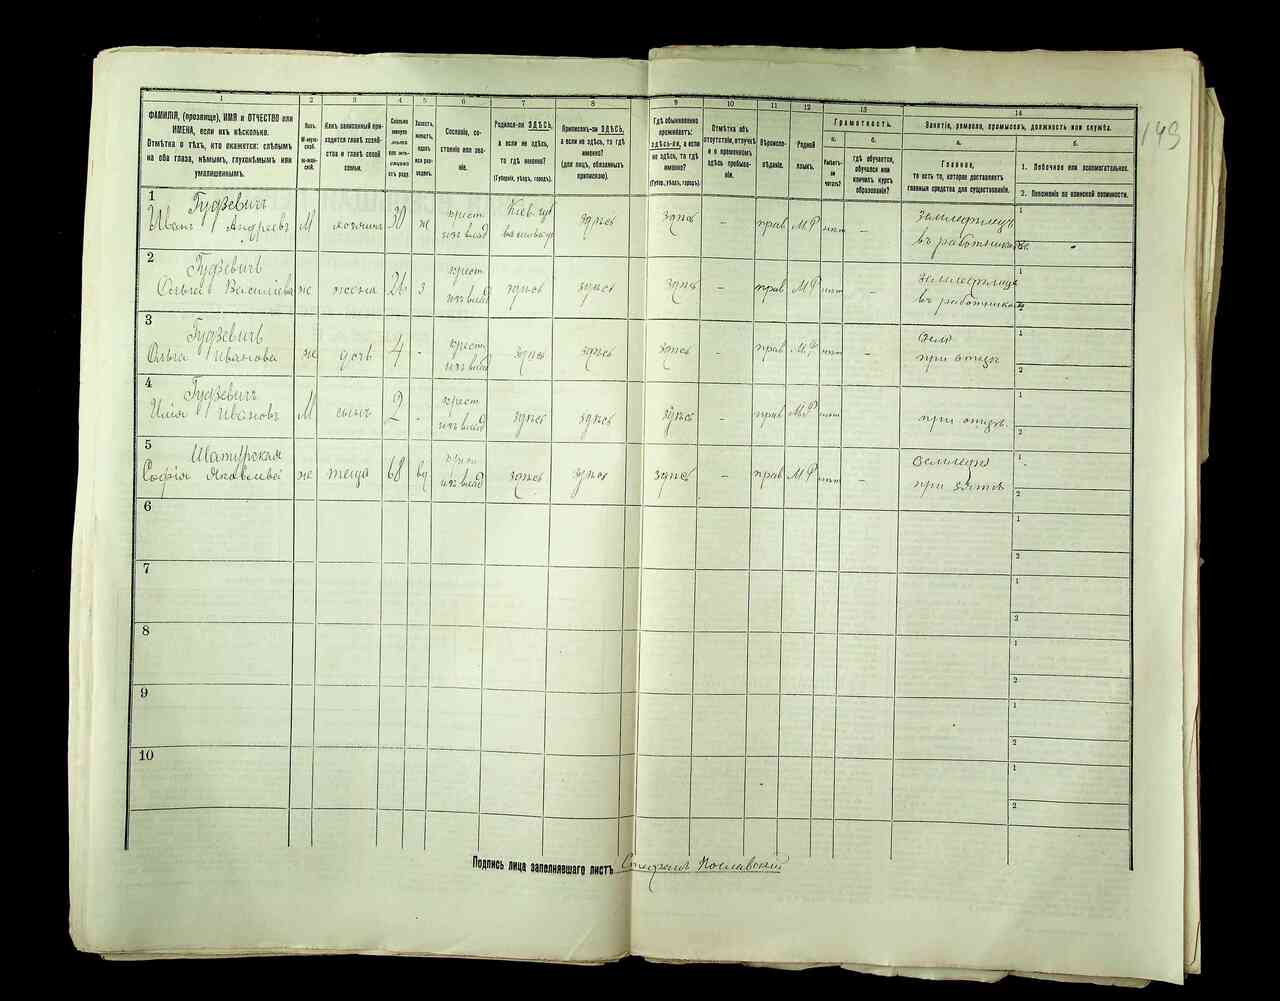 1 2 3 4 5 6 7 8 9 10 11 12 13 14
ФАМИЛІЯ, (прозвище), ИМЯ и ОТЧЕСТВО или ИМЕНА, если ихъ нѣсколько.
Отмѣтка о тѣхъ, кто окажется: слѣпымъ на оба глаза, нѣмымъ, глухонѣмымъ или умалишеннымъ.
Полъ.
М-мужской.
Ж-женскій.
Какъ записанный приходится главѣ хозяйства и главѣ своей семьи.
Сколько минуло лѣтъ или мѣсяцевъ отъ роду.
Холостъ, женатъ, вдовъ или разведенъ.
Сословіе, состояніе или званіе.
Родился-ли ЗДѢСЬ, а если не здѣсь, то гдѣ именно?
(Губернія, уѣздъ, городъ).
Приписанъ-ли ЗДѢСЬ, а если не здѣсь, то гдѣ именно?
(для лицъ, обязанныхъ припискою).
Гдѣ обыкновенно проживаетъ: здѣсь-ли, а если не здѣсь, то гдѣ именно?
(Губер., уѣздъ, городъ).
Отмѣтка объ отсутствіи, отлучкѣ и о временномъ здѣсь пребываніи.
Вѣроисповѣданіе.
Родной языкъ.
Грамотность.
а.
Умѣетъ-ли читать?
б.
гдѣ обучается, обучался или кончилъ курсъ образованія?
Занятіе, ремесло, промыселъ, должность или служба.
а.
Главное,
то есть то, которое доставляетъ главныя средства для существованія.
б.
1. Побочное или вспомогательное.
2. Положеніе по воинской повинности.
149
1
Гудзевичъ
Иванъ Андреевъ М хозяинъ 30 ж крест изъ влад Кіев. губ здѣсь здѣсь - прав М.Р нѣтъ - Земледѣлецъ въ работникахъ 1 2
2
Гудзевичъ
Ольга Василіева же жена 26 з крест изъ влад здѣсь здѣсь здѣсь - прав М.Р нѣтъ - въ работникахъ 1 2
3
Гудзевичъ
Ольга Иванова же дочь 4 - крест изъ влад здѣсь здѣсь здѣсь - прав М.Р нѣтъ - при отцѣ 1 2
4
Гудзевичъ
Илія Ивановъ М сынъ 2 - крест изъ влад здѣсь здѣсь здѣсь - прав М.Р нѣтъ при отцѣ. 1 2
5
Шатурская
Софія Яковлева же теща 68 вд изъ влад здѣсь здѣсь здѣсь - прав М.Р нѣтъ - при зятѣ 1 2
6 1 2
7 1 2
8 1 2
9 1 2
10 1 2
Подпись лица заполнявшаго листъ Стефанъ Пославскій